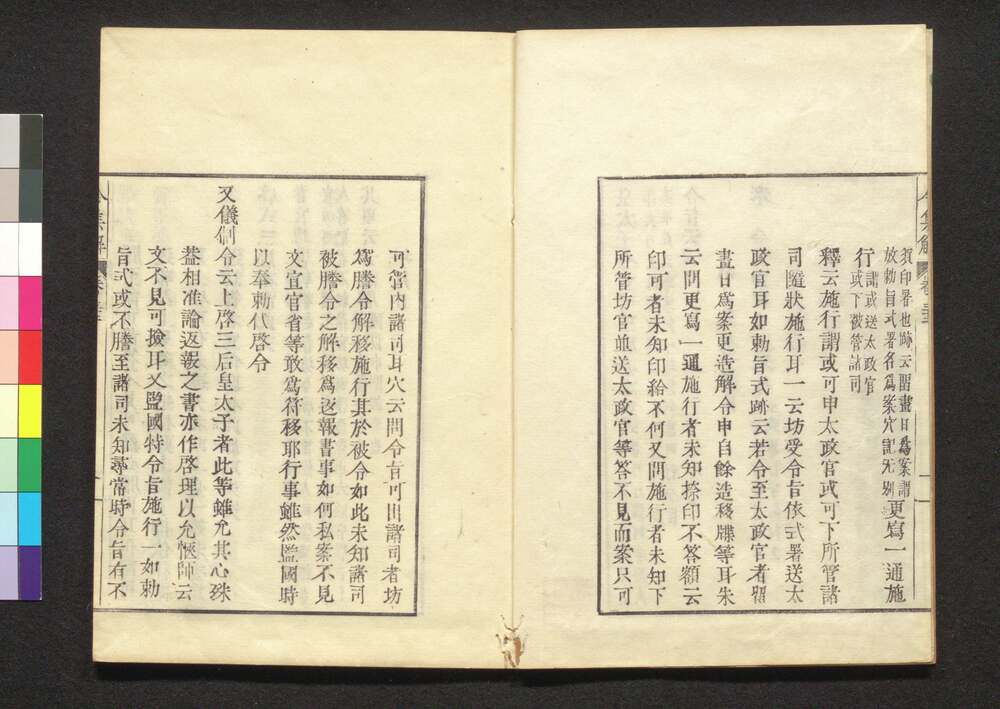 須印署也跡云留畫日爲案謂
放勅旨式署名爲案穴記无別
更寫一通施
行
謂或送太政官
或下被管諸司
釋云施行謂或可申太政官或可下所管諸
司隨狀施行耳一云坊受令旨依式署送太
政官耳如勅旨式跡云若令至太政官者留
畫日爲案更造解令申自餘造移牒等耳朱
云問更寫一通施行者未知捺印不答額云
印可者未知印給不何又問施行者未知下
所管坊官並送太政官等答不見而案只可
可管內諸司耳穴云問令旨可出諸司者坊
爲謄令解移施行其於被令如此未知諸司
被謄令之解移爲返報書事如何私案不見
文宣官省等敢爲符移耶行事雖然監國時
以奉勅代啓令
又儀制令云上啓三后皇太子者此等雖允其心殊
葢相准論返報之書亦作啓理以允愜師云
文不見可撿耳又監國特令旨施行一如勅
旨式或不謄至諸司未知尋常時令旨有不